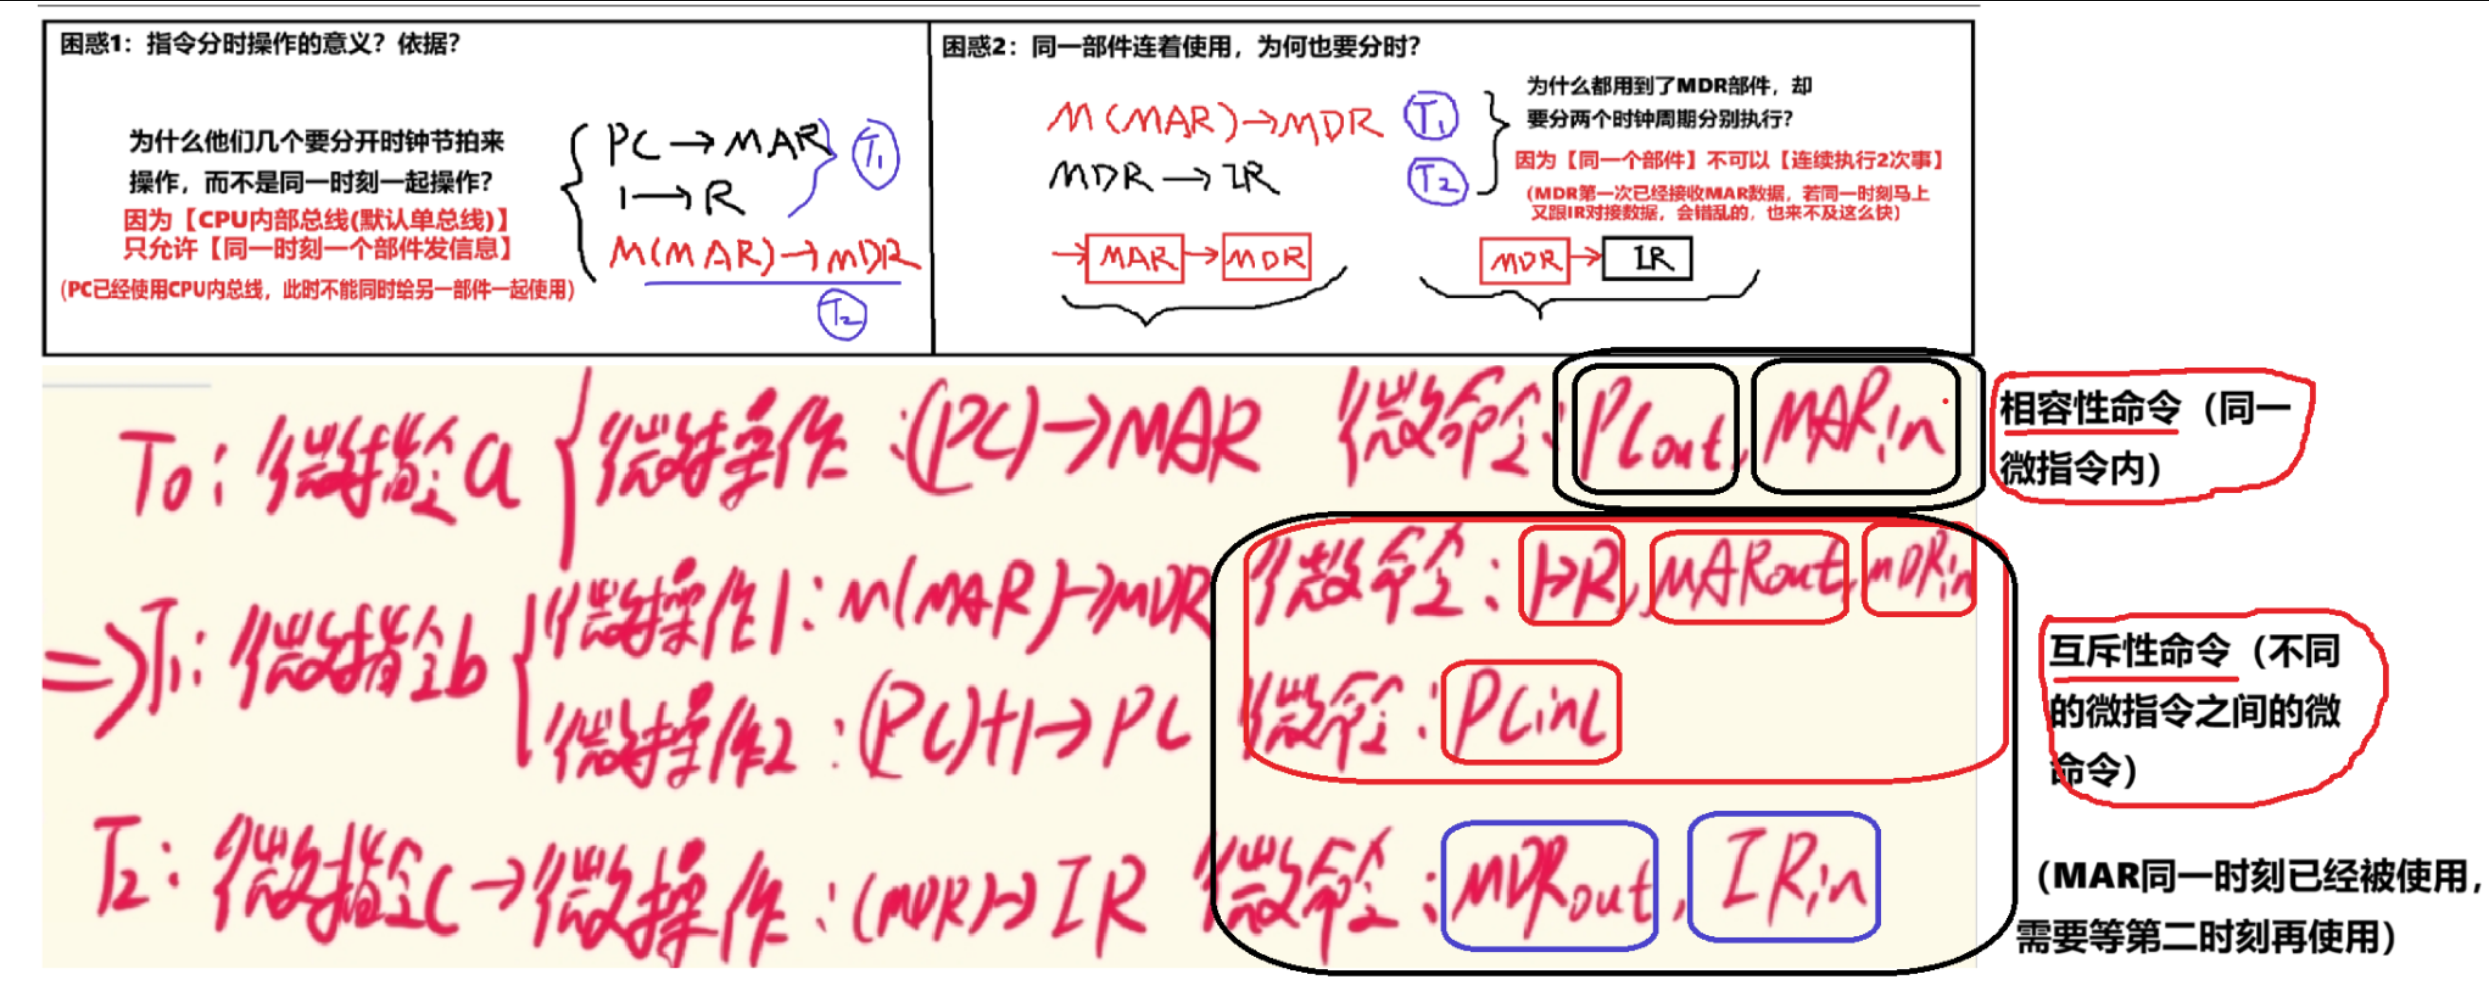 困惑1：指令分时操作的意义？依据？
为什么他们几个要分开时钟节拍来
操作，而不是同一时刻一起操作？
因为【CPU内部总线(默认单总线)】
只允许【同一时刻一个部件发信息】
(PC已经使用CPU内总线，此时不能同时给另一部件一起使用)
PC→MAR
1→R
T1
M(MAR)→MDR
T2
困惑2：同一部件连着使用，为何也要分时？
M(MAR)→MDR T1
MDR→IR T2
为什么都用到了MDR部件，却
要分两个时钟周期分别执行？
因为【同一个部件】不可以【连续执行2次事】
(MDR第一次已经接收MAR数据，若同一时刻马上
又跟IR对接数据，会错乱的，也来不及这么快)
→MAR→MDR
MDR→IR
T0：微指令a 微操作：(PC)→MAR 微命令：PCout，MARin
相容性命令（同一
微指令内）
=>T1：微指令b 微操作1：M(MAR)→MDR 微命令：1→R，MARout，MDRin
微操作2：(PC)+1→PC 微命令：PCinc
互斥性命令（不同
的微指令之间的微
命令）
T2：微指令c→微操作：(MDR)→IR 微命令：MDRout，IRin
（MAR同一时刻已经被使用，
需要等第二时刻再使用）